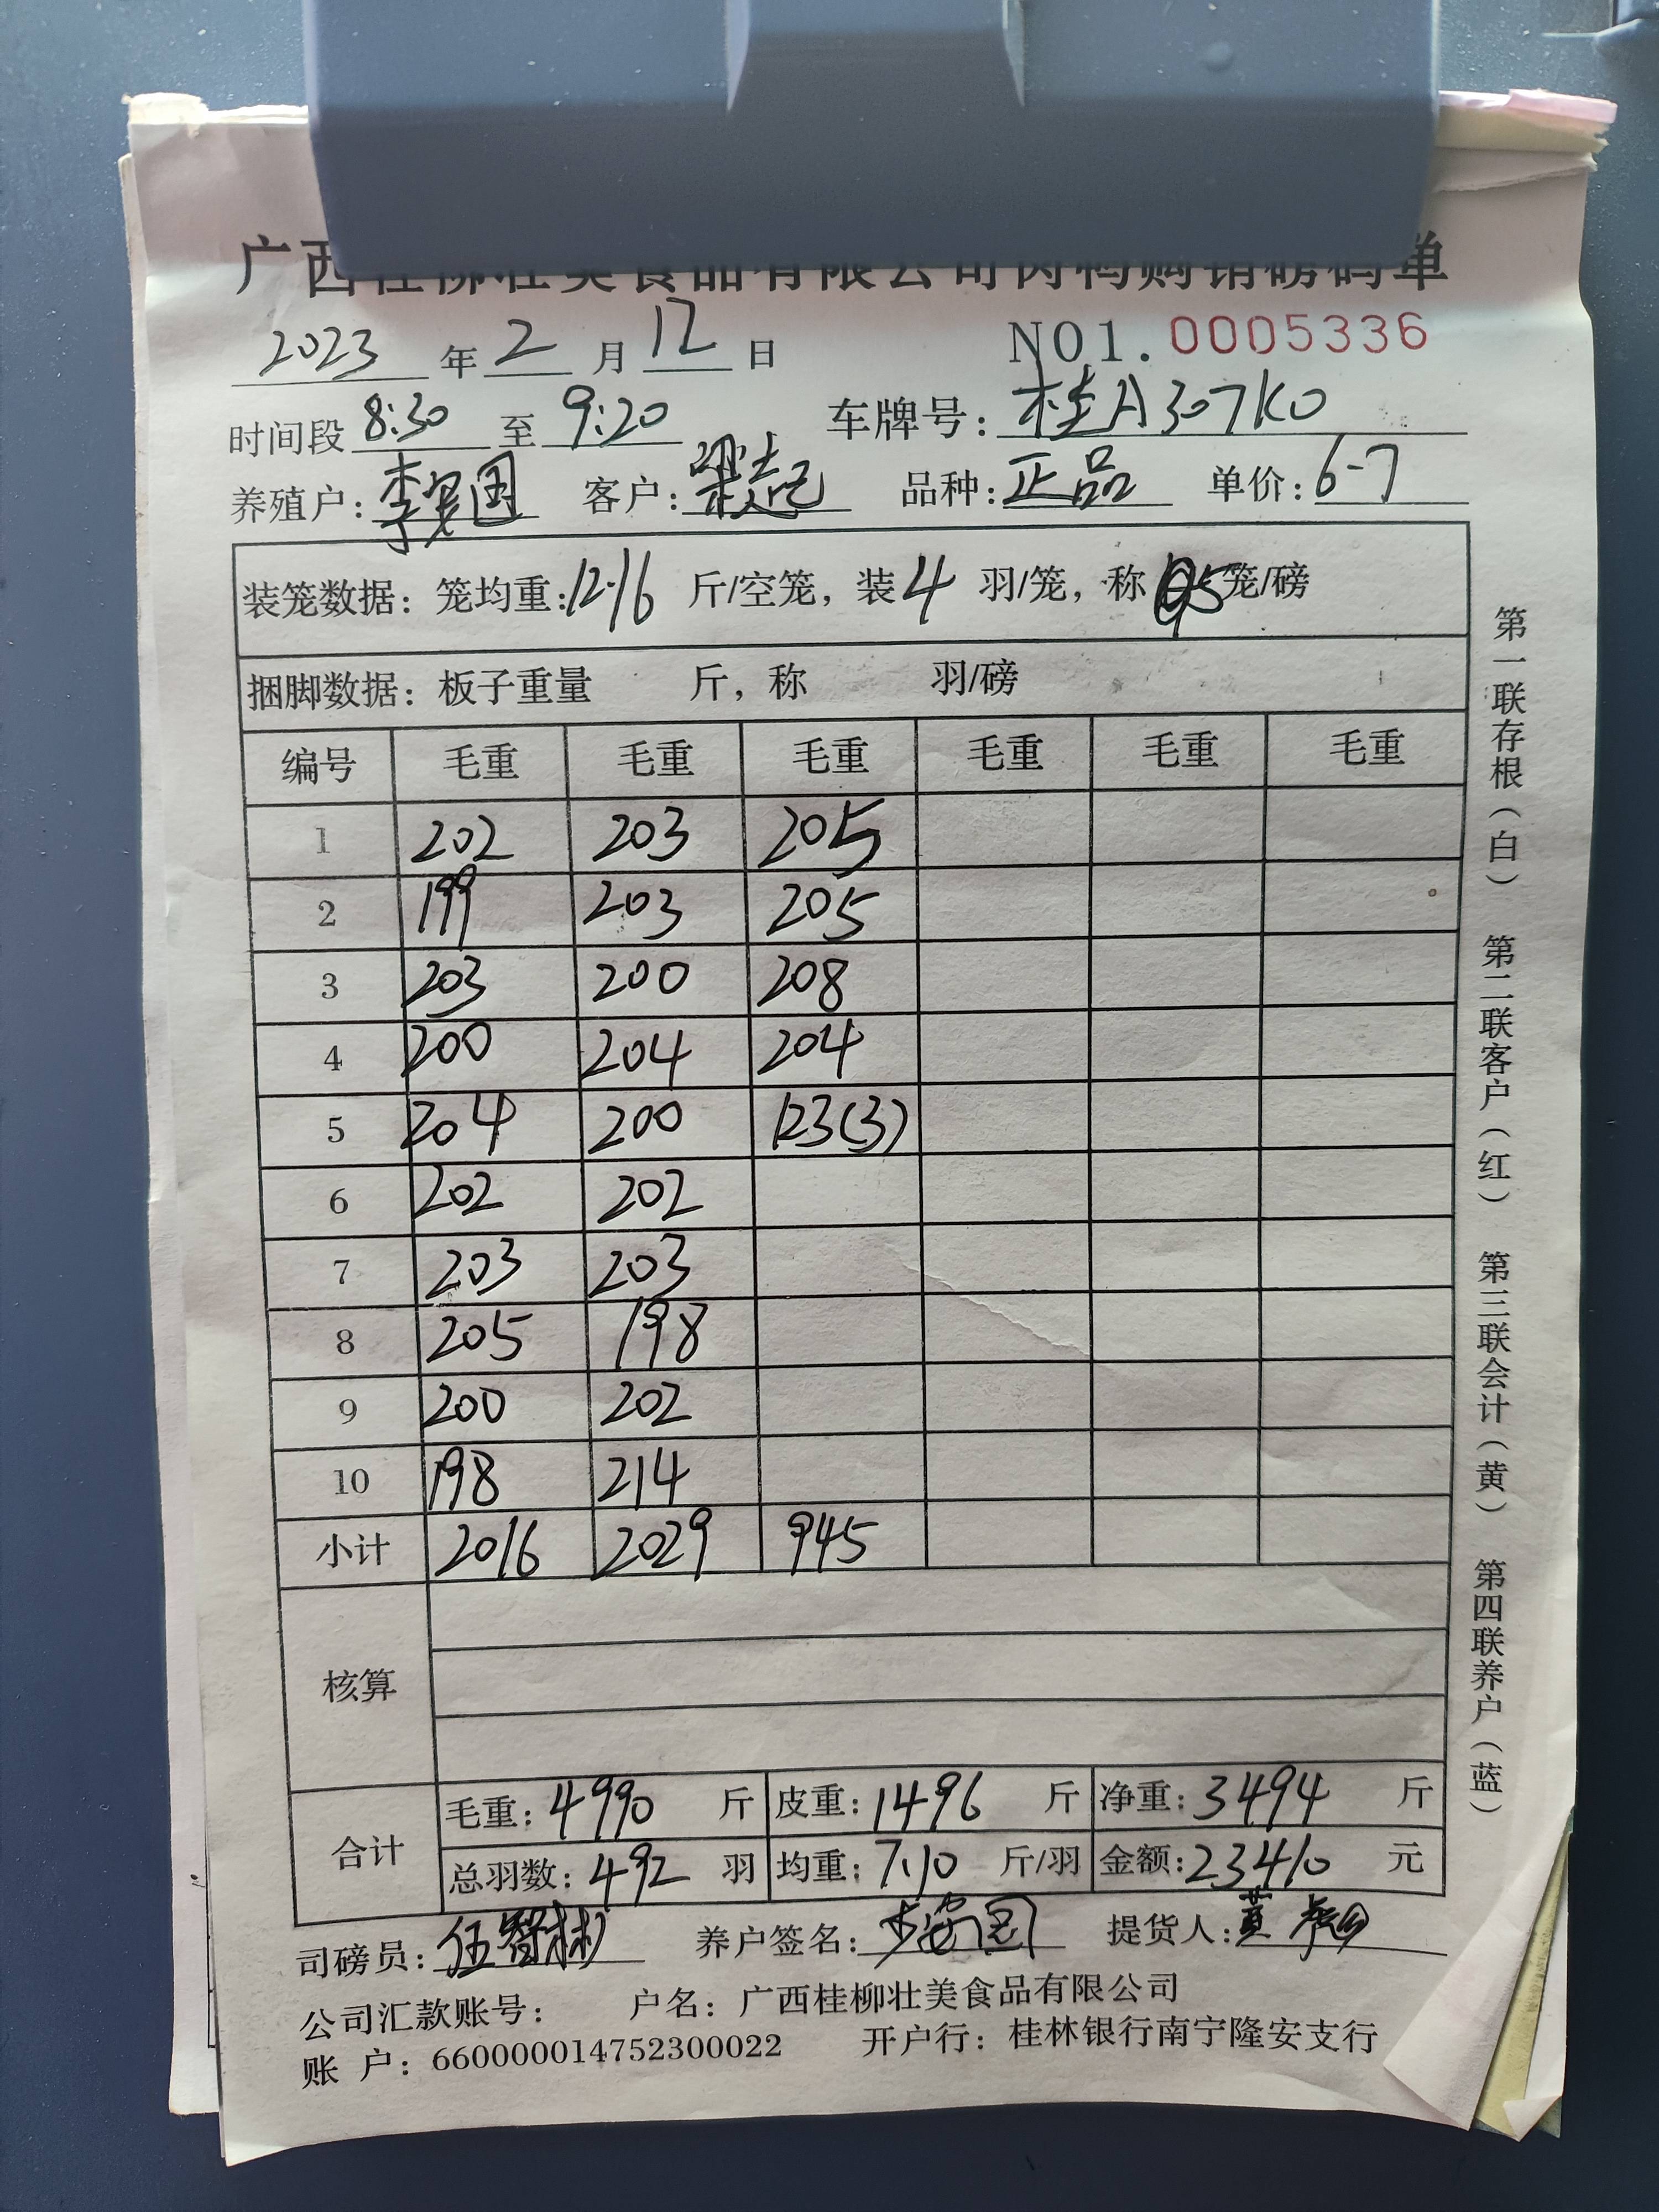 广西桂柳壮美食品有限公司肉鸭购销磅码单
2023 年 2 月 12 日 NO1. 0005336
时间段 8:30 至 9:20 车牌号: 桂A307K0
养殖户: 李 国 客户: 梁起 品种: 正品 单价: 6-7
装笼数据: 笼均重: 12.16 斤/空笼, 装 4 羽/笼, 称 5 笼/磅
捆脚数据: 板子重量 斤, 称 羽/磅
编号 毛重 毛重 毛重 毛重 毛重 毛重
1 202 203 205
2 199 203 205
3 203 200 208
4 200 204 204
5 204 200 123(3)
6 202 202
7 203 203
8 205 198
9 200 202
10 198 214
小计 2016 2029 945
核算
合计
毛重: 4990 斤 皮重: 1496 斤 净重: 3494 斤
总羽数: 492 羽 均重: 7.10 斤/羽 金额: 23410 元
司磅员: 伍智彬 养户签名: 国 提货人: 黄
公司汇款账号: 户名: 广西桂柳壮美食品有限公司
账 户: 660000014752300022 开户行: 桂林银行南宁隆安支行
第一联存根(白) 第二联客户(红) 第三联会计(黄) 第四联养户(蓝)